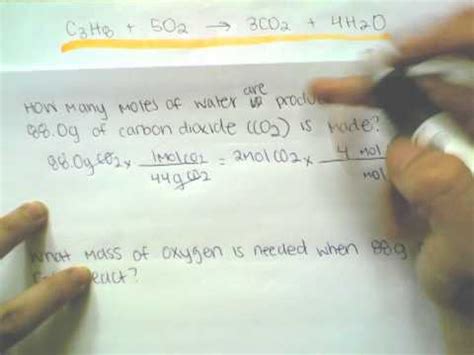 C3H8 + 5O2 → 3CO2 + 4H2O
How many moles of water are produ
88.0g of carbon dioxide (CO2) is made?
88.0gCO2 × 1molCO2 / 44gCO2 = 2molCO2 × 4 mol / mol
What mass of oxygen is needed when 88g
eact?